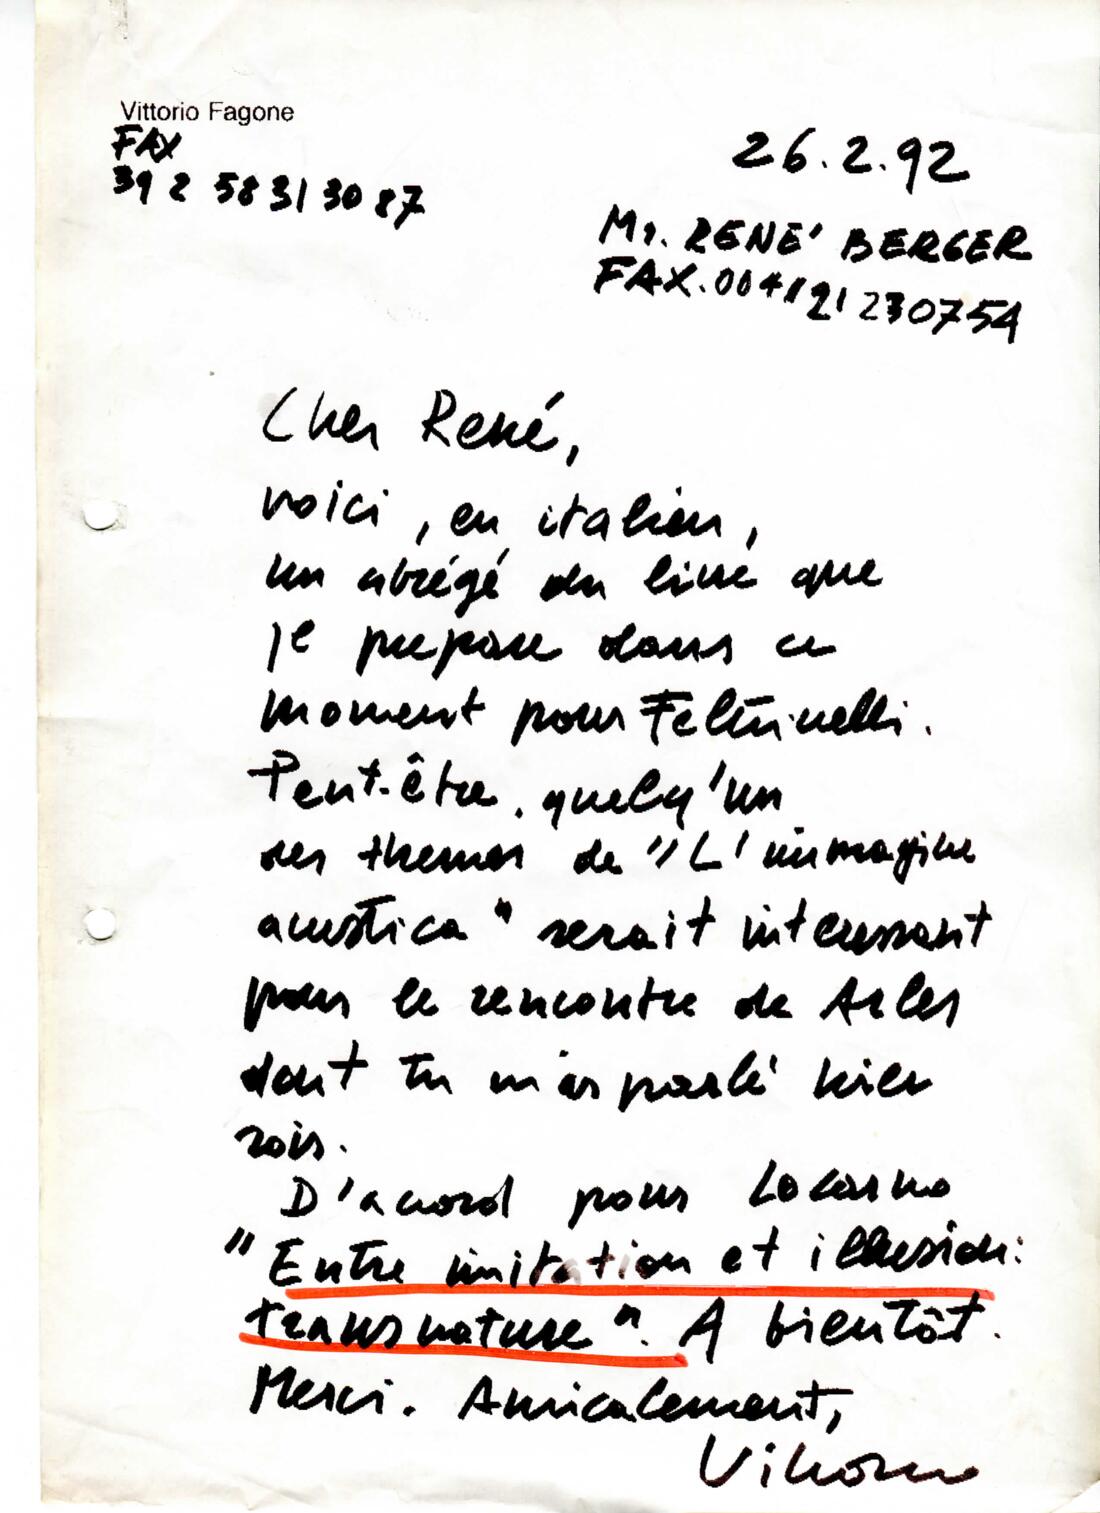 Vittorio Fagone
FAX
39 2 58313087
26.2.92
Mr. RENE' BERGER
FAX. 0041 21 230754
Cher René,
voici, en italien,
un abrégé du livre que
je prepare dans ce
moment pour Feltrinelli.
Peut-être, quelq'un
des themes de "L'immagine
acustica" serait interessant
pour le rencontre de Arles
dont tu m'as parlé hier
soir.
D'acord pour Locarno
"Entre imitation et illusion:
transnature". A bientôt.
Merci. Amicalement,
Vittorio